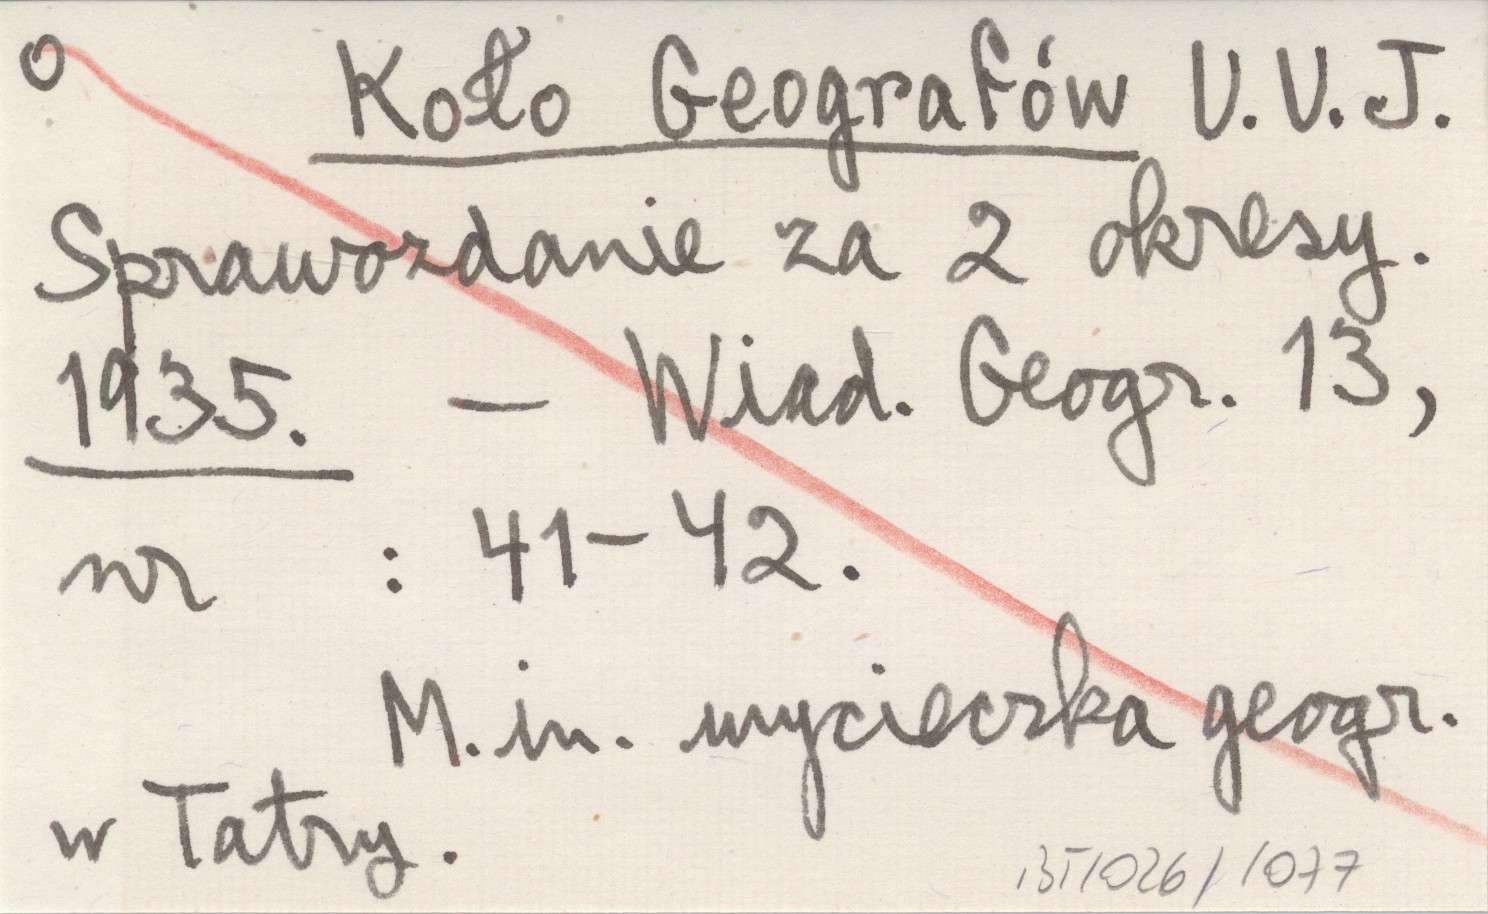 o Koło Geografów U.U.J.
Sprawozdanie za 2 okresy.
1935. — Wiad. Geogr. 13,
nr : 41-42.
M.in. wycieczka geogr.
w Tatry.
BT/026/1077